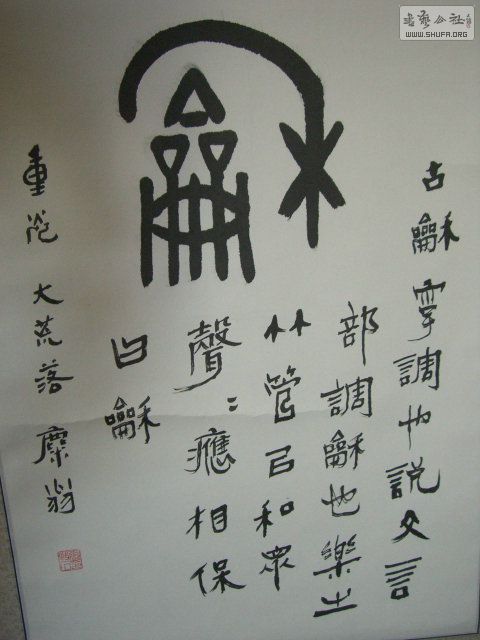 龢
古龢字調也説文言
部調龢也樂之
竹管㠯和眾
聲〻應相保
曰龢
重光大荒落麋翁
書藝公社
WWW.SHUFA.ORG